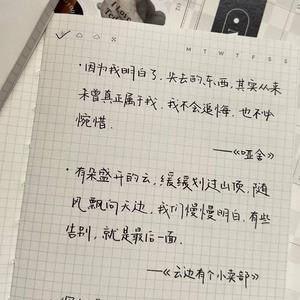 M T W T F S S
·因为我明白了,失去的东西,其实从来
未曾真正属于我,我不会追悔,也不必
惋惜.
——《哑舍》
·有朵盛开的云,缓缓划过山顶,随
风飘向天边,我们慢慢明白,有些
告别,就是最后一面.
——《云边有个小卖部》